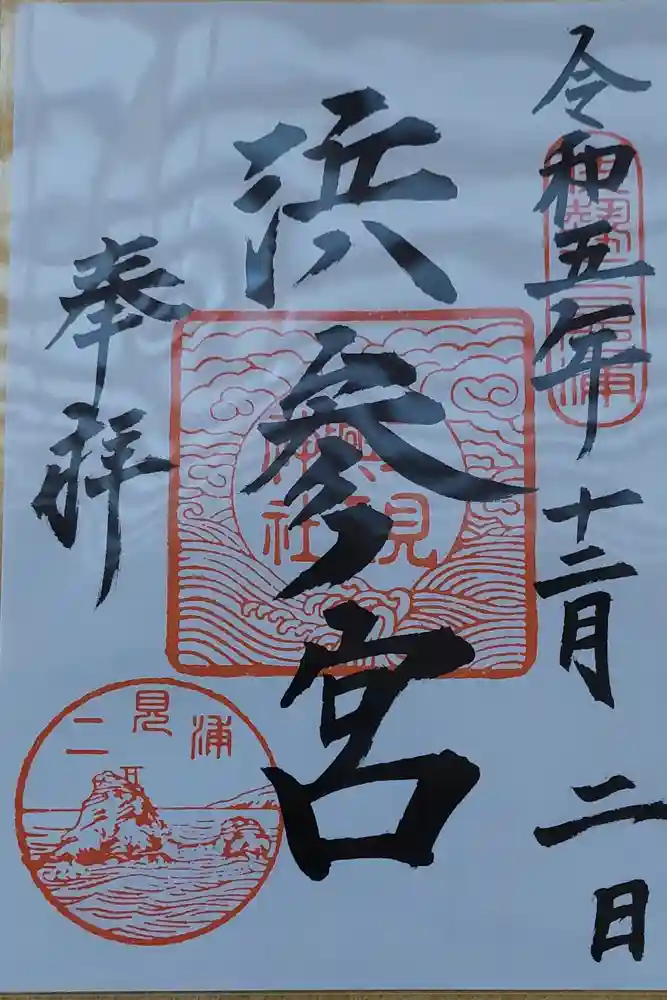 令和五年十二月二日
伊勢二見浦
浜参宮
二見興玉神社
奉拝
二見浦